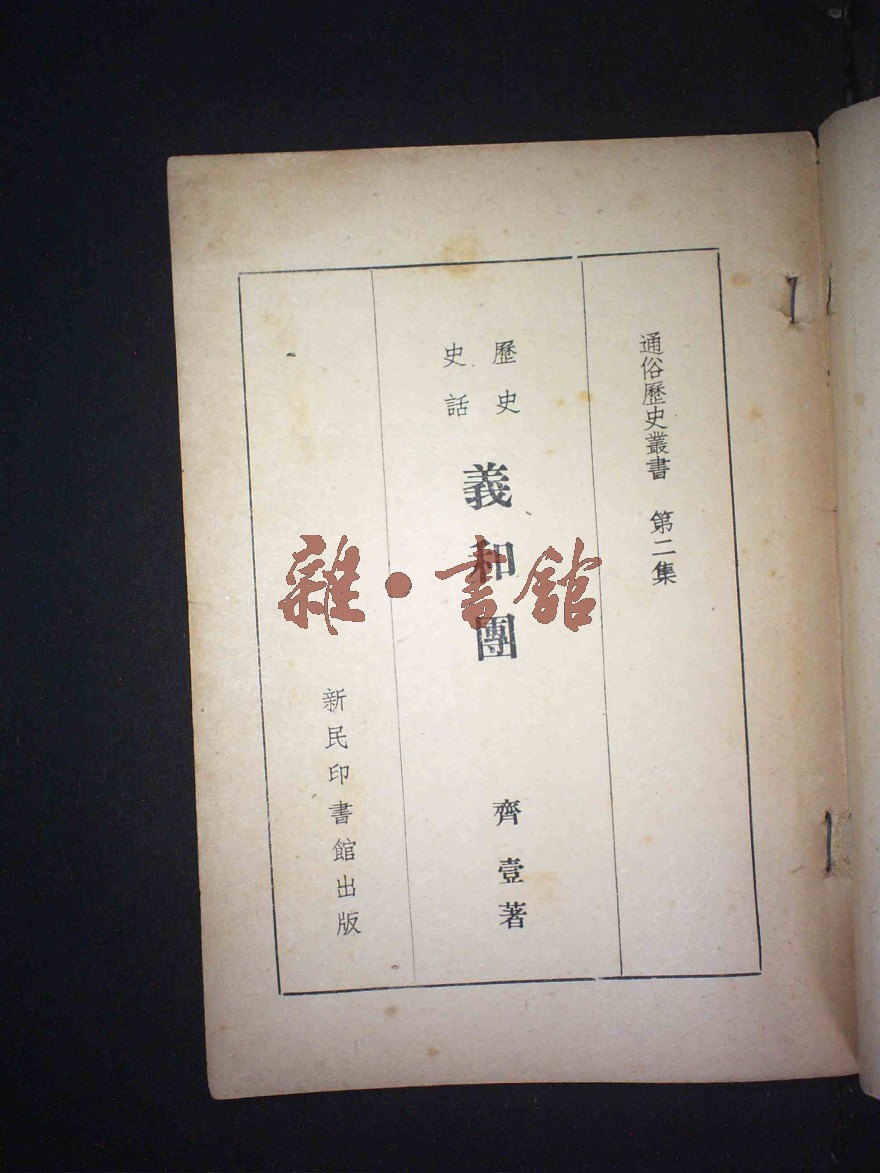 通俗歷史叢書 第二集
歷史
史話
義和團
齊壹著
新民印書館出版
雜·書館